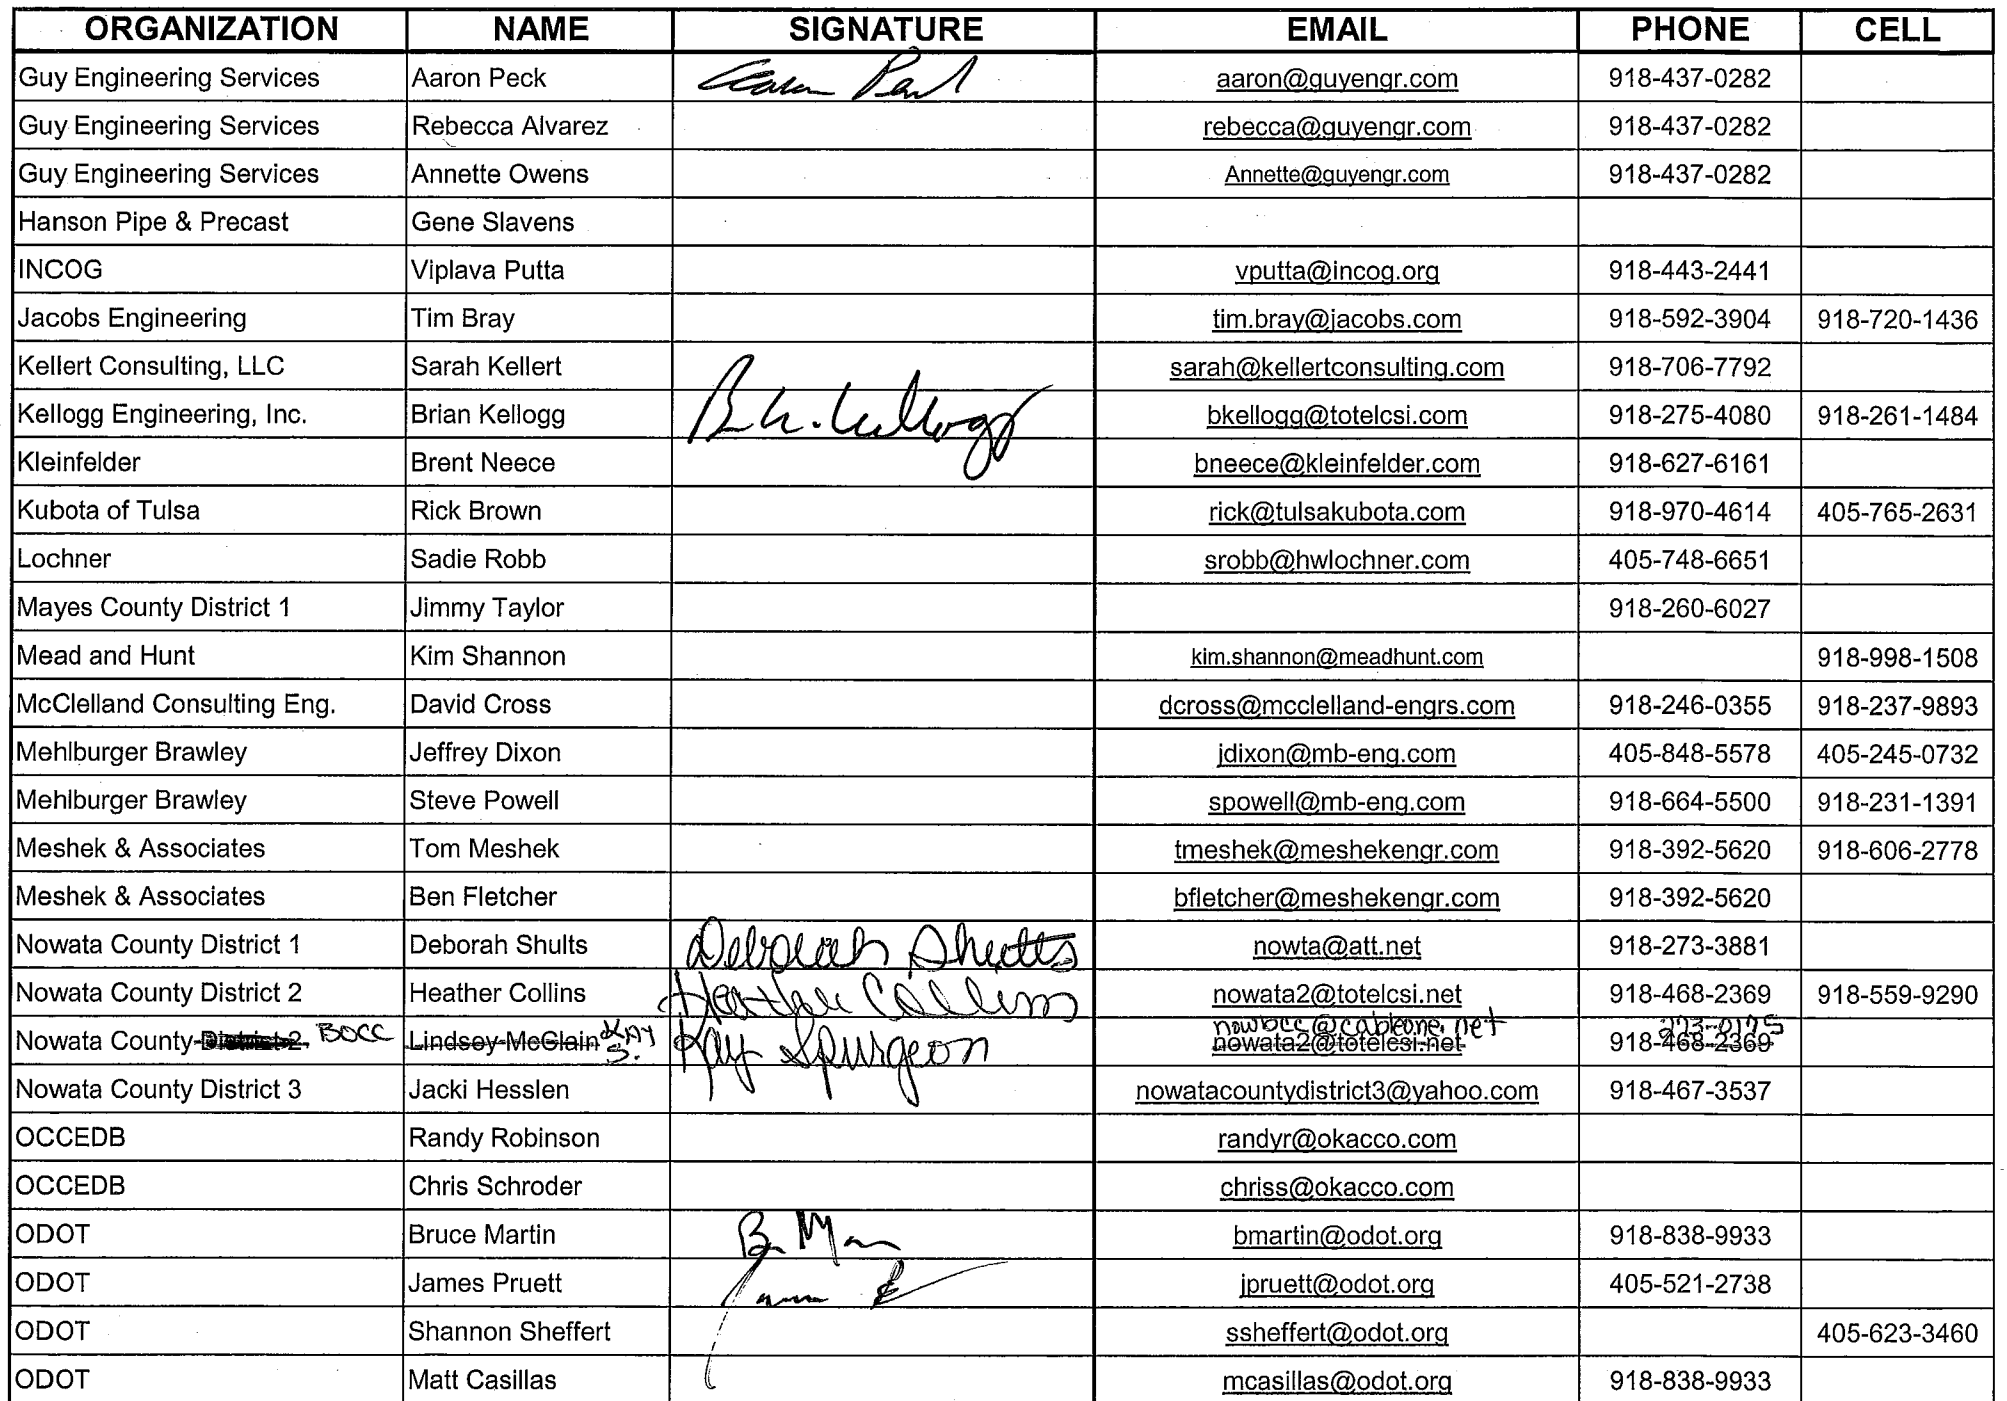 ORGANIZATION NAME SIGNATURE EMAIL PHONE CELL
Guy Engineering Services Aaron Peck Aaron Peck aaron@guyengr.com 918-437-0282
Guy Engineering Services Rebecca Alvarez rebecca@guyengr.com 918-437-0282
Guy Engineering Services Annette Owens Annette@guyengr.com 918-437-0282
Hanson Pipe & Precast Gene Slavens
INCOG Viplava Putta vputta@incog.org 918-443-2441
Jacobs Engineering Tim Bray tim.bray@jacobs.com 918-592-3904 918-720-1436
Kellert Consulting, LLC Sarah Kellert sarah@kellertconsulting.com 918-706-7792
Kellogg Engineering, Inc. Brian Kellogg B.K. Kellogg bkellogg@totelcsi.com 918-275-4080 918-261-1484
Kleinfelder Brent Neece bneece@kleinfelder.com 918-627-6161
Kubota of Tulsa Rick Brown rick@tulsakubota.com 918-970-4614 405-765-2631
Lochner Sadie Robb srobb@hwlochner.com 405-748-6651
Mayes County District 1 Jimmy Taylor 918-260-6027
Mead and Hunt Kim Shannon kim.shannon@meadhunt.com 918-998-1508
McClelland Consulting Eng. David Cross dcross@mcclelland-engrs.com 918-246-0355 918-237-9893
Mehlburger Brawley Jeffrey Dixon jdixon@mb-eng.com 405-848-5578 405-245-0732
Mehlburger Brawley Steve Powell spowell@mb-eng.com 918-664-5500 918-231-1391
Meshek & Associates Tom Meshek tmeshek@meshekengr.com 918-392-5620 918-606-2778
Meshek & Associates Ben Fletcher bfletcher@meshekengr.com 918-392-5620
Nowata County District 1 Deborah Shults Deborah Shults nowta@att.net 918-273-3881
Nowata County District 2 Heather Collins Heather Collins nowata2@totelcsi.net 918-468-2369 918-559-9290
nowbcc@cableone.net 273-0175
Nowata County District 2 BOCC Lindsey McClain KAY S. Kay Spurgeon nowata2@totelcsi.net 918-468-2369
Nowata County District 3 Jacki Hesslen nowatacountydistrict3@yahoo.com 918-467-3537
OCCEDB Randy Robinson randyr@okacco.com
OCCEDB Chris Schroder chriss@okacco.com
ODOT Bruce Martin bmartin@odot.org 918-838-9933
ODOT James Pruett jpruett@odot.org 405-521-2738
ODOT Shannon Sheffert ssheffert@odot.org 405-623-3460
ODOT Matt Casillas mcasillas@odot.org 918-838-9933